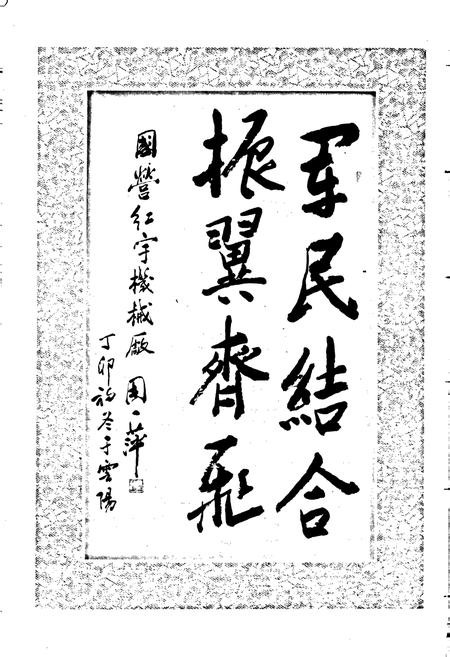 軍民結合
振翼齊飛
國營紅宇機械廠 周一萍
丁卯初冬于雲陽